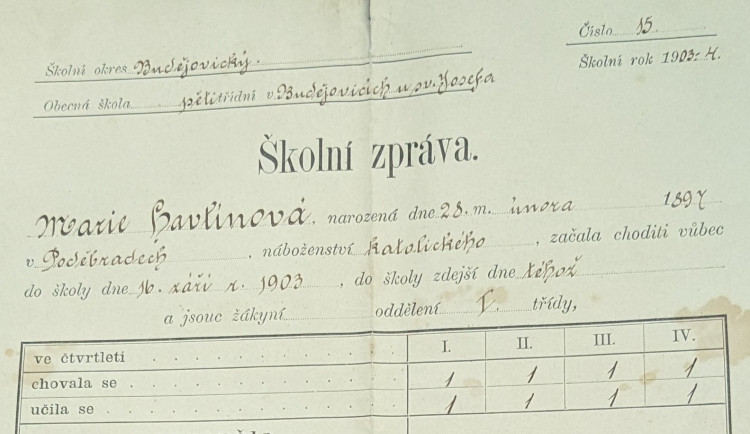 Číslo 15
Školní okres Budějovický.
Školní rok 1903-4.
Obecná škola pětitřídní v Budějovicích u sv. Josefa
Školní zpráva.
Marie Havlínová, narozená dne 28. m. února 1897
v Poděbradech, náboženství katolického, začala choditi vůbec
do školy dne 16. září r. 1903, do školy zdejší dne téhož
a jsouc žákyní oddělení V. třídy,
ve čtvrtletí I. II. III. IV.
chovala se 1 1 1 1
učila se 1 1 1 1